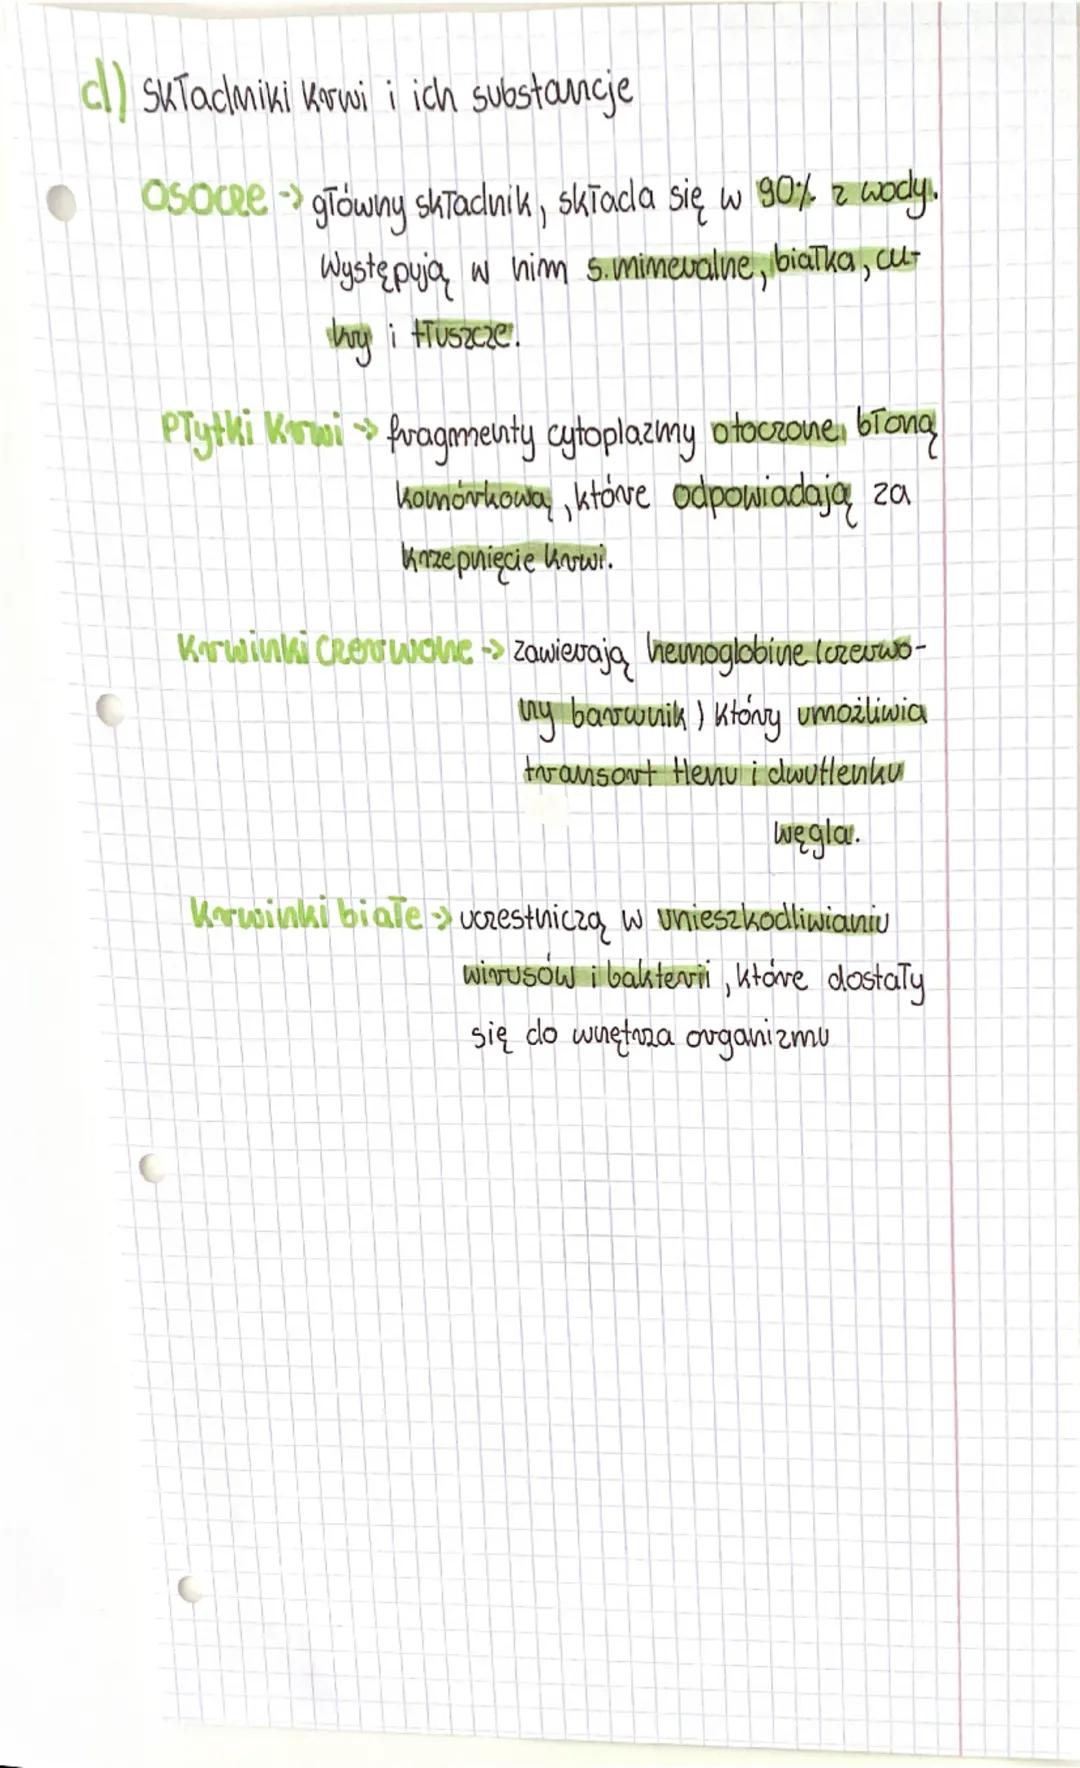 d) Składniki krwi i ich substancje
Osocze -> główny składnik, składa się w 90% z wody.
Występują w nim s.mineralne, białka, cu-
kry i tłuszcze.
Płytki krwi -> fragmenty cytoplazmy otoczone błoną
komórkową, które odpowiadają za
krzepnięcie krwi.
Krwinki czerwone -> zawierają hemoglobinę (czerwo-
ny barwnik) który umożliwia
transort tlenu i dwutlenku
węgla.
Krwinki białe -> uczestniczą w unieszkodliwianiu
wirusów i bakterii, które dostały
się do wnętrza organizmu